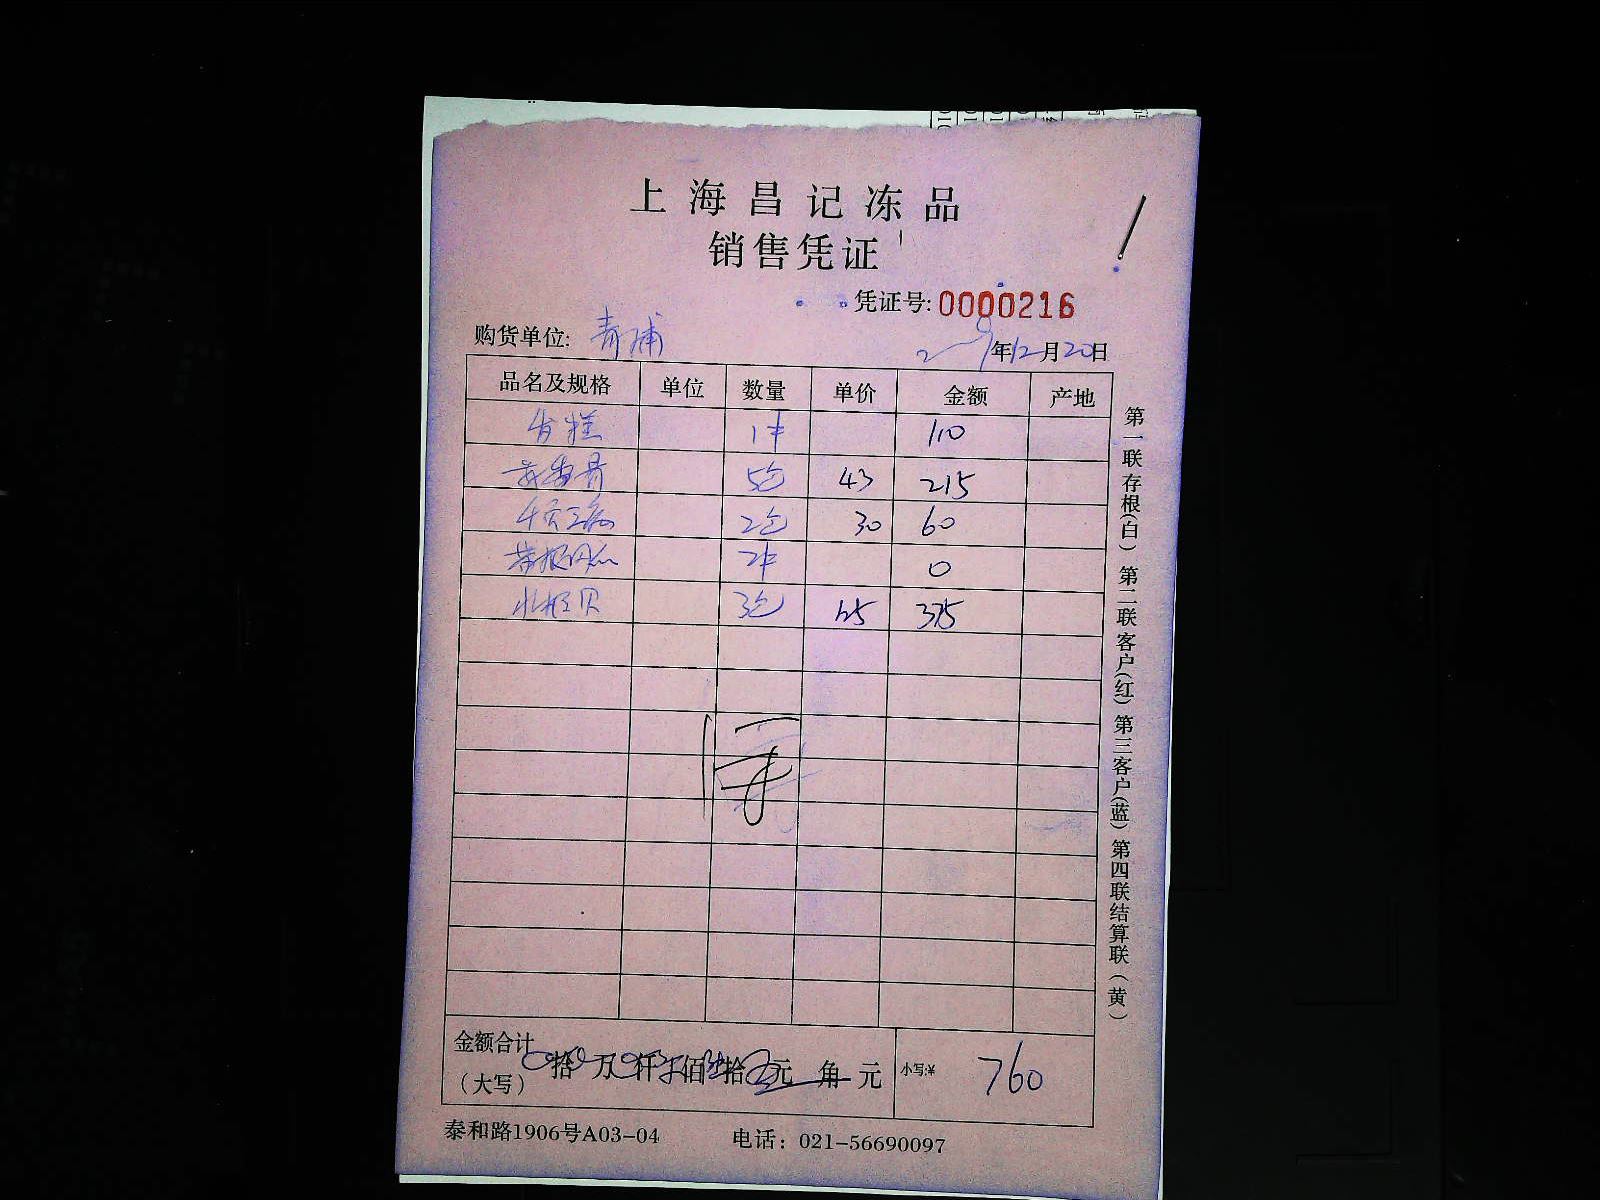 上海昌记冻品
销售凭证
凭证号:0000216
购货单位: 青浦
年12月20日
品名及规格 单位 数量 单价 金额 产地
1件 110
5包 43 215
2包 30 60
2件 0
3包 125 375
第一联存根(白)第二联客户(红)第三客户(蓝)第四联结算联(黄)
金额合计
(大写) 拾 万 仟 佰 拾 元 角 元 小写:¥ 760
泰和路1906号A03-04 电话: 021-56690097